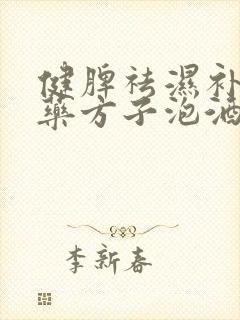 健脾祛濕补
藥方子泡酒
李新春